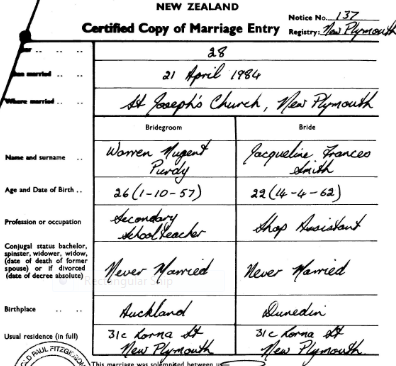 NEW ZEALAND
Notice No. 137
Certified Copy of Marriage Entry
Registry: New Plymouth
28
married 21 April 1984
Where married St Joseph's Church, New Plymouth
Bridegroom Bride
Name and surname Warren Nugent Purdy Jacqueline Frances Smith
Age and Date of Birth 26 (1-10-57) 22 (14-4-62)
Profession or occupation Secondary School Teacher Shop Assistant
Conjugal status bachelor,
spinster, widower, widow,
(date of death of former
spouse) or if divorced
(date of decree absolute) Never Married Never Married
Birthplace Auckland Dunedin
Usual residence (in full) 31c Lorna St New Plymouth 31c Lorna St New Plymouth
PAUL FITZGER
This marriage was solemnized between us